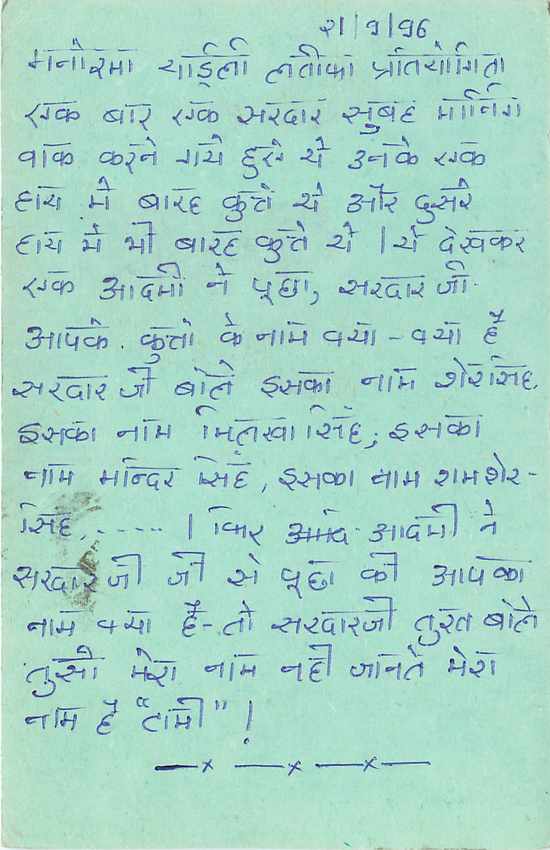 २१/९/९६
मनोरमा यार्ड्ली लतीफा प्रतियोगिता
एक बार एक सरदार सुबह मॉर्निंग
वाक करने गये हुए थे उनके एक
हाथ में बारह कुत्ते थे और दुसरे
हाथ में भी बारह कुत्ते थे । ये देखकर
एक आदमी ने पूछा, सरदार जी
आपके कुत्तो के नाम क्या - क्या है
सरदार जी बोले इसका नाम शेरसिंह,
इसका नाम मिलखा सिंह, इसका
नाम मन्दिर सिंह, इसका नाम शमशेर-
सिंह, ..... । फिर आदमी ने
सरदारजी जी से पूछा की आपका
नाम क्या है - तो सरदारजी तुरत बोले
तुसी मेरा नाम नही जानते मेरा
नाम है "टामी" !